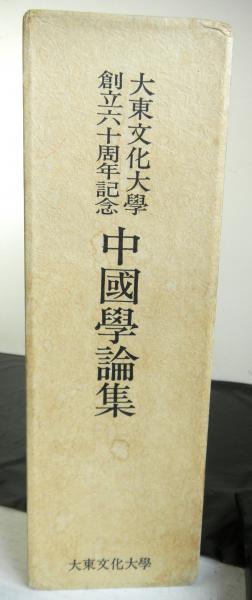 大東文化大學
創立六十周年記念
中國學論集
大東文化大學